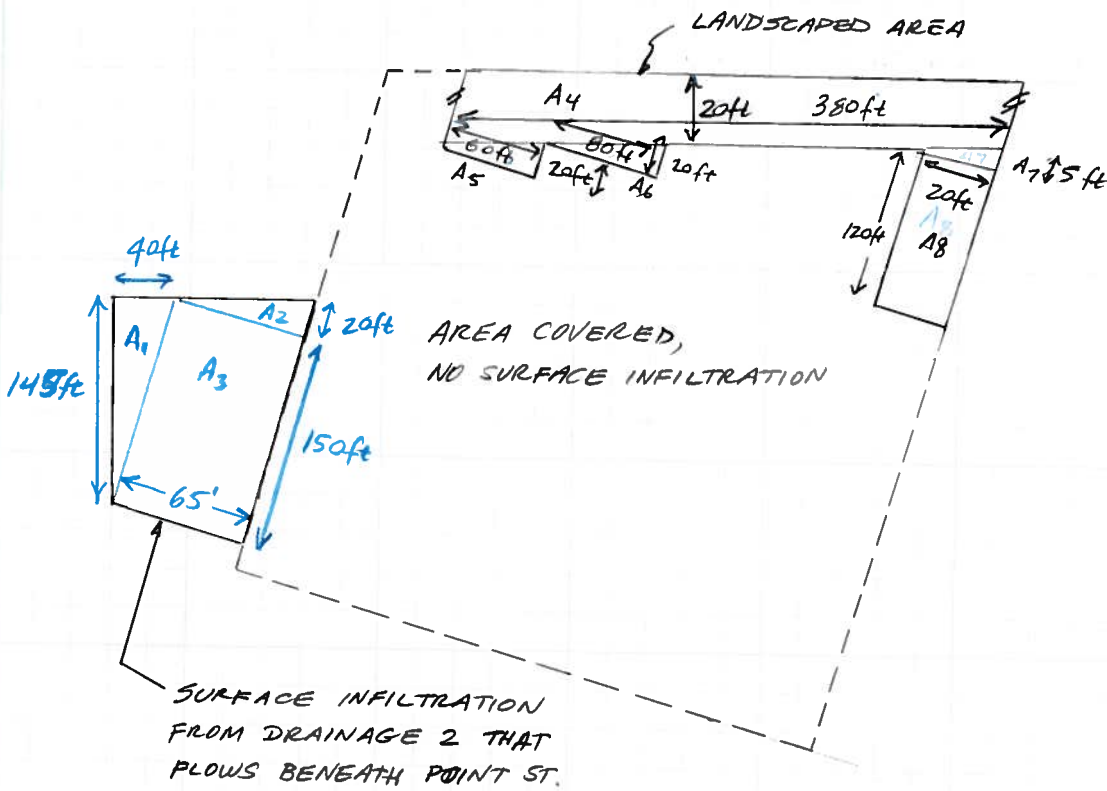 LANDSCAPED AREA
A4
20ft
380ft
60ft
80ft
20ft
A5
20ft
A6
A7
A7
5ft
20ft
120ft
A8
A8
40ft
A1
A2
20ft
A3
145ft
150ft
65'
AREA COVERED,
NO SURFACE INFILTRATION
SURFACE INFILTRATION
FROM DRAINAGE 2 THAT
FLOWS BENEATH POINT ST.